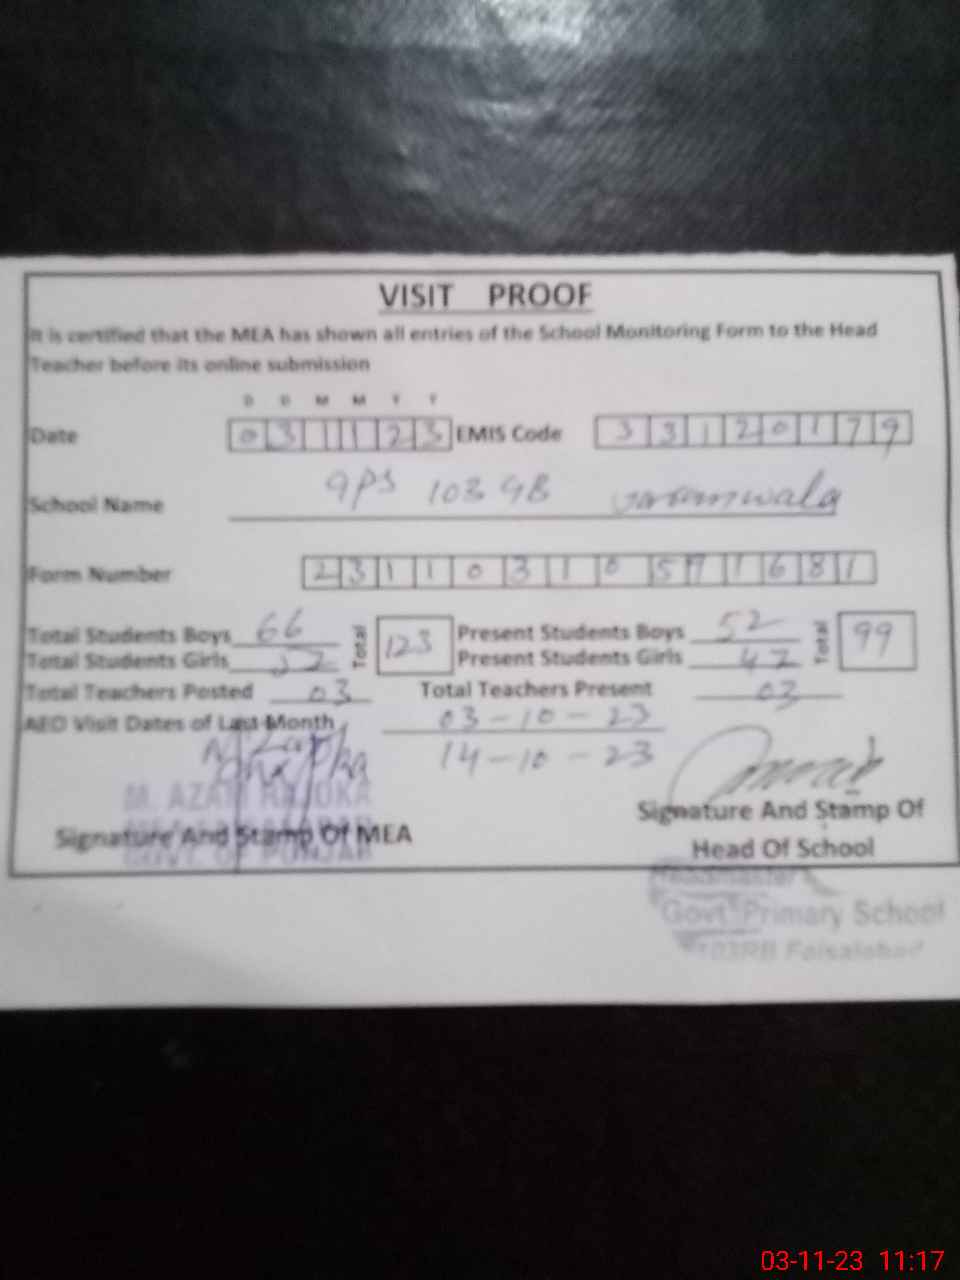 VISIT PROOF
It is certified that the MEA has shown all entries of the School Monitoring Form to the Head
Teacher before its online submission
D D M M Y Y
Date 0 3 1 1 2 3 EMIS Code 3 3 1 2 0 1 7 9
School Name GPS 103 GB
Form Number 2 3 1 1 0 3 1 0 5 9 1 6 8 1
Total Students Boys 66 Total 123 Present Students Boys 52 Total 99
Total Students Girls Present Students Girls 47
Total Teachers Posted 03 Total Teachers Present 03
AEO Visit Dates of Last Month 03-10-23
14-10-23
M. AZAM RAJOKA
Signature And Stamp Of MEA
GOVT. OF PUNJAB
Signature And Stamp Of
Head Of School
Headmaster
Govt. Primary School
103RB Faisalabad
03-11-23 11:17